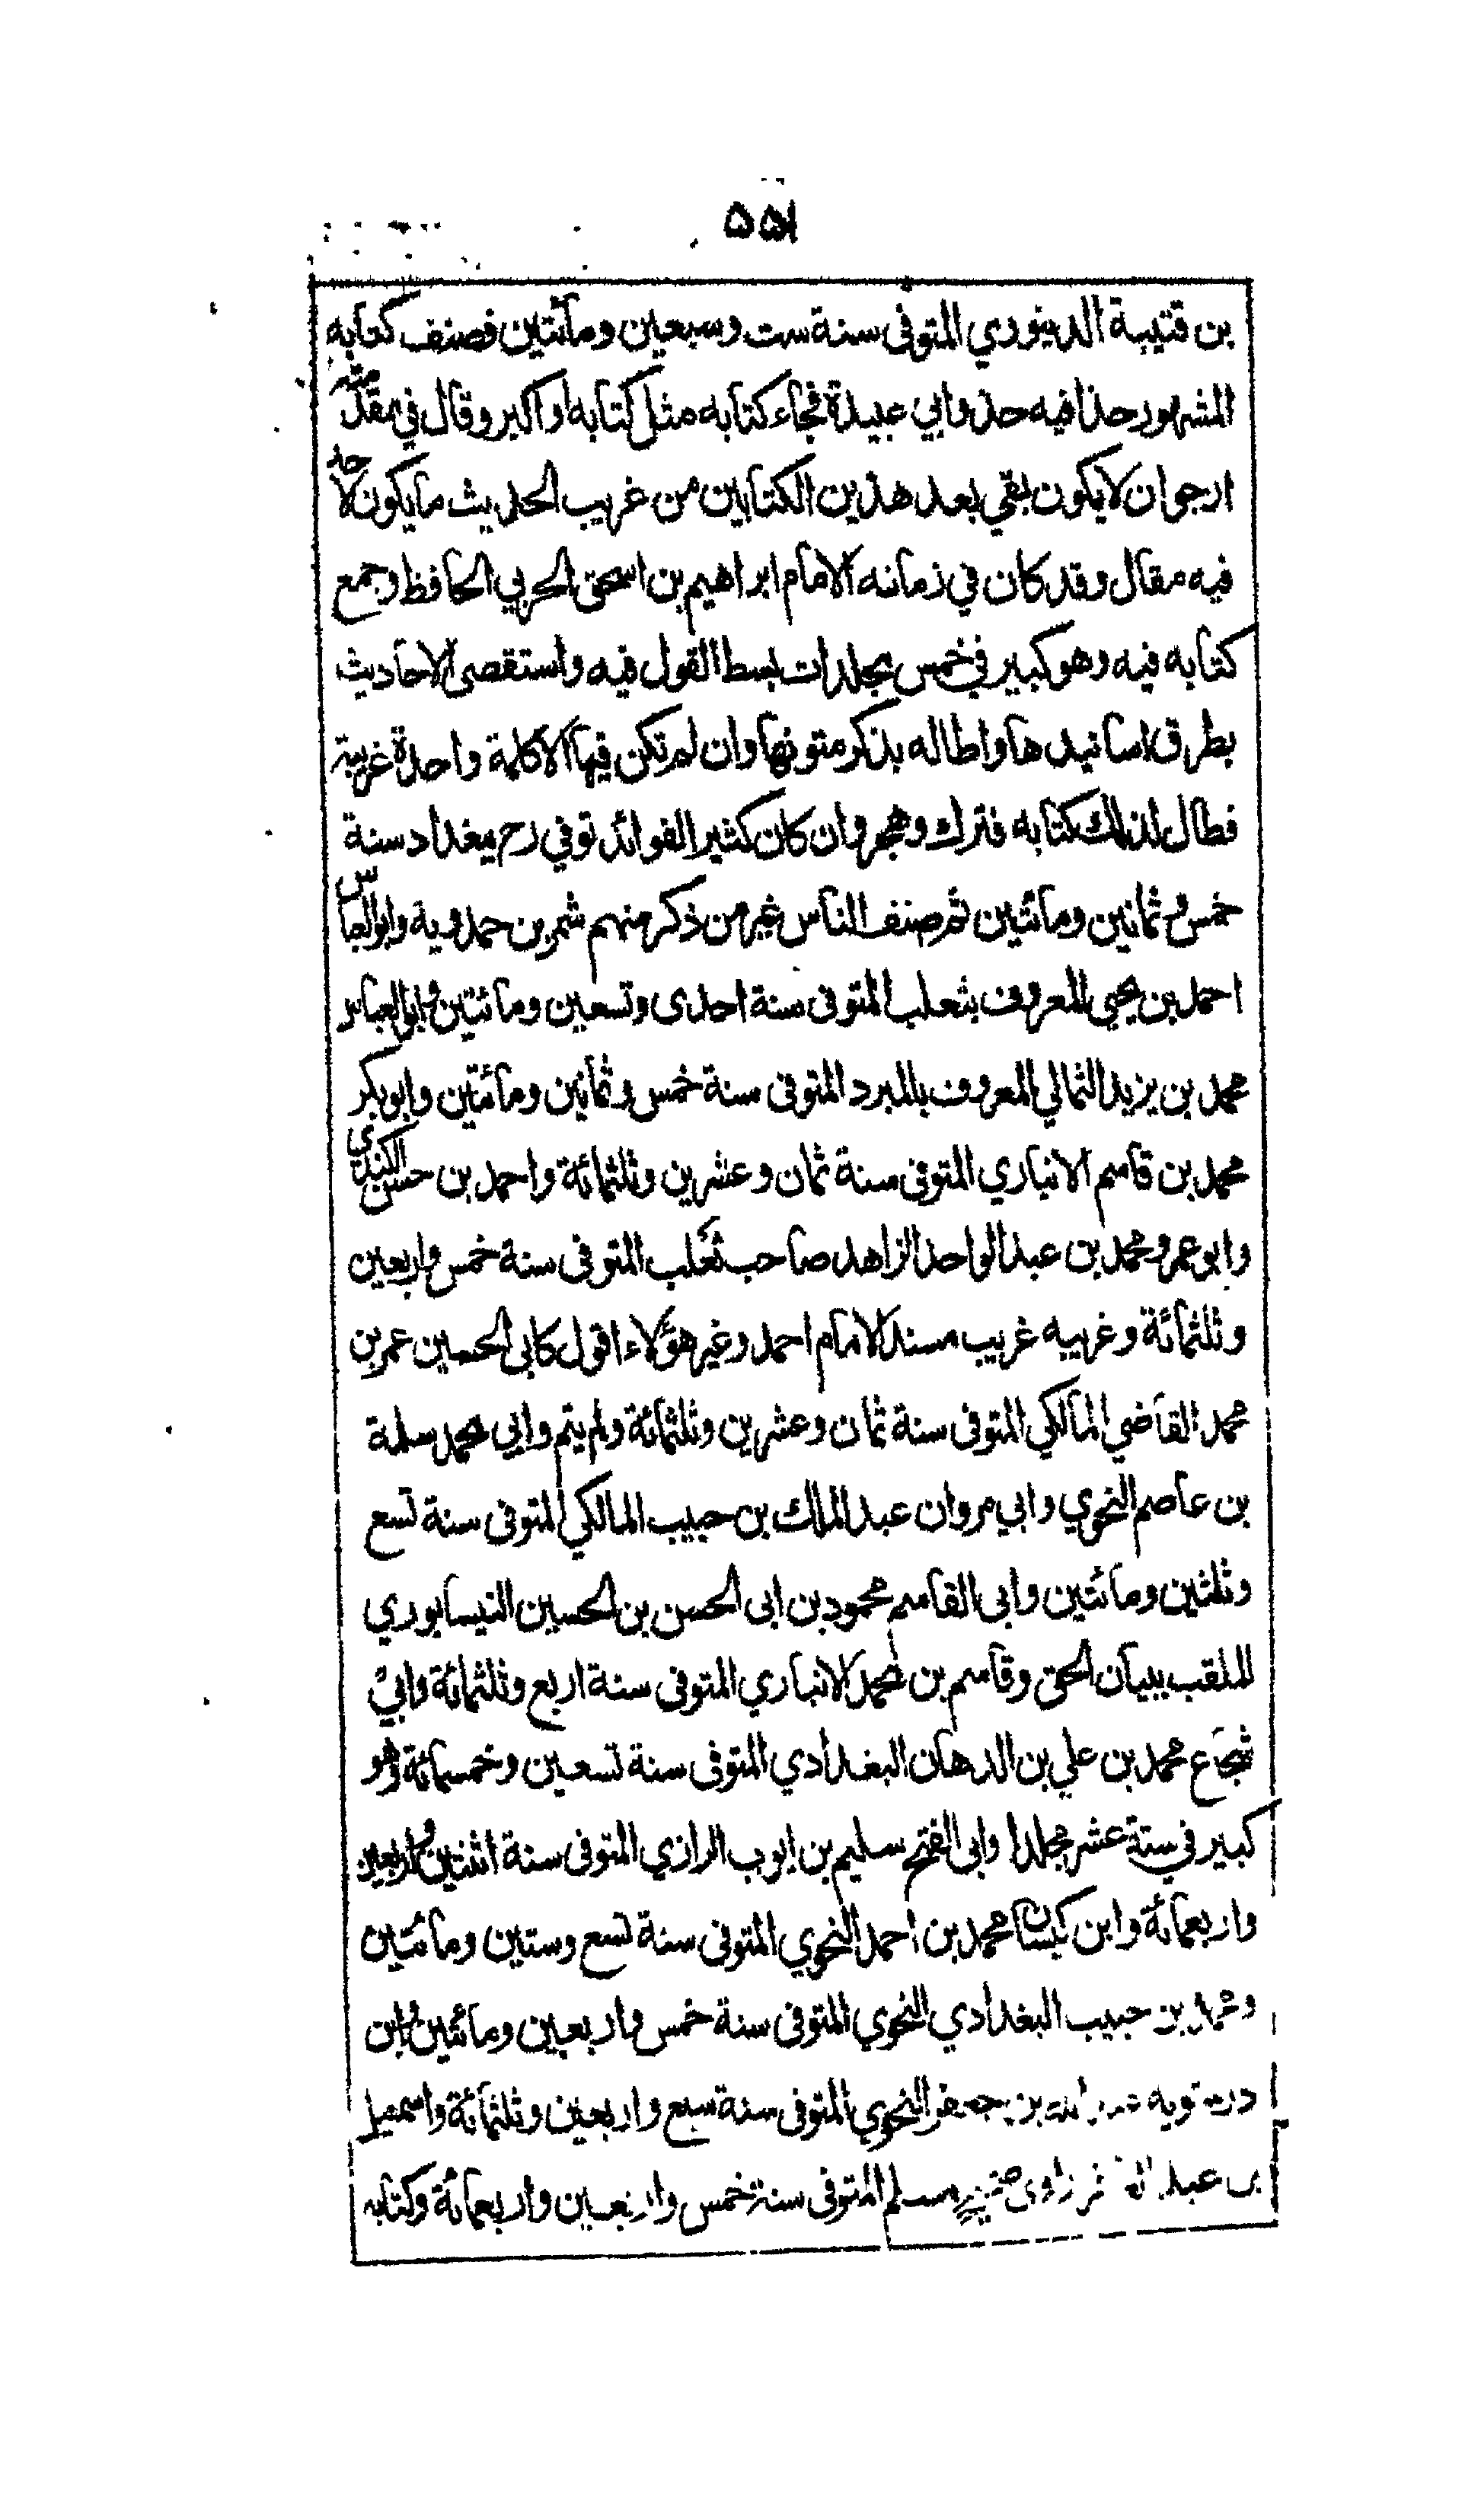 ٥٥١
بن قتيبة الدينوري المتوفى سنة ست وسبعين ومائتين فصنف كتابه
المشهور حذا فيه حذو ابي عبيدة فجاء كتابه مثل كتابه او اكبر وقال في مقدمته
ارجو ان لا يكون بقي بعد هذين الكتابين من غريب الحديث ما يكون لاحد
فيه مقال وقد كان في زمانه الامام ابراهيم بن اسحق الحربي الحافظ وجمع
كتابه فيه وهو كبير في خمس مجلدات بسط القول فيه واستقصى الاحاديث
بطرق اسانيدها واطاله بذكر متونها وان لم تكن فيها الا كلمة واحدة غريبة
فطال لذلك كتابه فترك وهجر وان كان كثير الفوائد توفي رح ببغداد سنة
خمس وثمانين ومائتين ثم صنف الناس غير من ذكر منهم شمر بن حمدوية وابو العباس
احمد بن يحيى المعروف بثعلب المتوفى سنة احدى وتسعين ومائتين وابو العباس
محمد بن يزيد الثمالي المعروف بالمبرد المتوفى سنة خمس وثمانين ومائتين وابو بكر
محمد بن قاسم الانباري المتوفى سنة ثمان وعشرين وثلثمائة واحمد بن حسن الكندي
وابو عمرو محمد بن عبد الواحد الزاهد صاحب ثعلب المتوفى سنة خمس واربعين
وثلثمائة وغريبه غريب مسند الامام احمد وغير هؤلاء اقول كابى الحسين عمر بن
محمد القاضي المالكي المتوفى سنة ثمان وعشرين وثلثمائة ولم يتم وابي محمد سلمة
بن عاصم النحوي وابي مروان عبد الملك بن حبيب المالكي المتوفى سنة تسع
وثلثين ومائتين وابى القاسم محمود بن ابى الحسن بن الحسين النيسابوري
الملقب ببيان الحق وقاسم بن محمد الانباري المتوفى سنة اربع وثلثمائة وابي
شجاع محمد بن علي بن الدهان البغدادي المتوفى سنة تسعين وخمسمائة وهو
كبير في ستة عشر مجلدا وابى الفتح سليم بن ايوب الرازي المتوفى سنة اثنتين واربعين
واربعمائة وابن كيسان محمد بن احمد النحوي المتوفى سنة تسع وستين ومائتين
ومحمد بن حبيب البغدادي النحوي المتوفى سنة خمس واربعين ومائتين وابن
درستويه عبد الله بن جعفر النحوي المتوفى سنة سبع واربعين وثلثمائة واسمعيل
بن عبد راوى صحيح مسلم المتوفى سنة خمس واربعين واربعمائة وكتابه